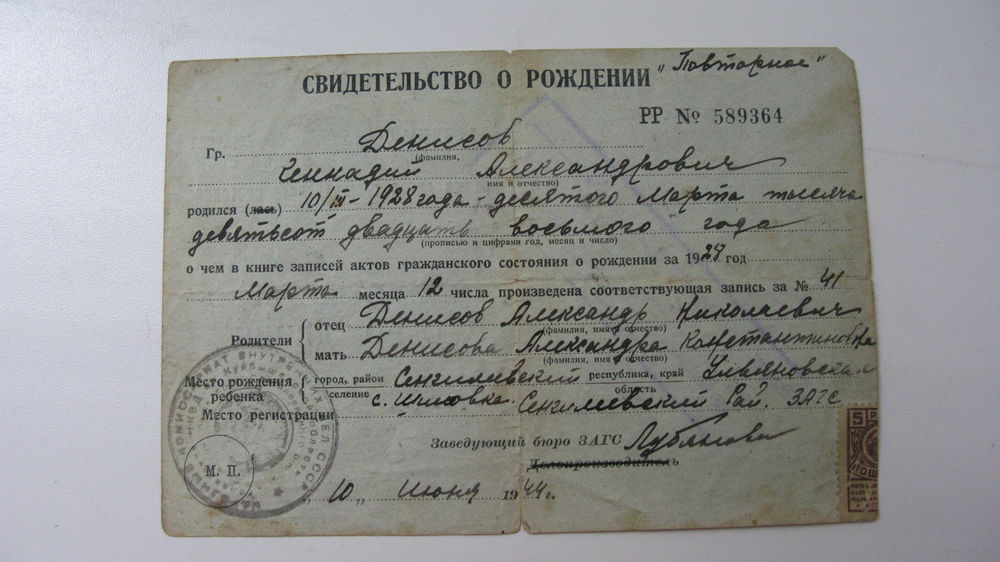 СВИДЕТЕЛЬСТВО О РОЖДЕНИИ "Повторное"
РР № 589364
Гр. Денисов
(фамилия,
Геннадий Александрович
имя и отчество)
родился (лась) 10/III - 1928 года - десятого Марта тысяча
девятьсот двадцать восьмого года
(прописью и цифрами год, месяц и число)
о чем в книге записей актов гражданского состояния о рождении за 1928 год
Марта месяца 12 числа произведена соответствующая запись за № 41
Родители
отец Денисов Александр Николаевич
(фамилия, имя и отчество)
мать Денисова Александра Константиновна
(фамилия, имя и отчество)
Место рождения ребенка
город, район Сенгилеевский республика, край Ульяновская
селение с. область
Место регистрации Сенгилеевский Рай. ЗАГС
Заведующий бюро ЗАГС
Делопроизводитель
М. П.
"10" июня 1944 г.
5